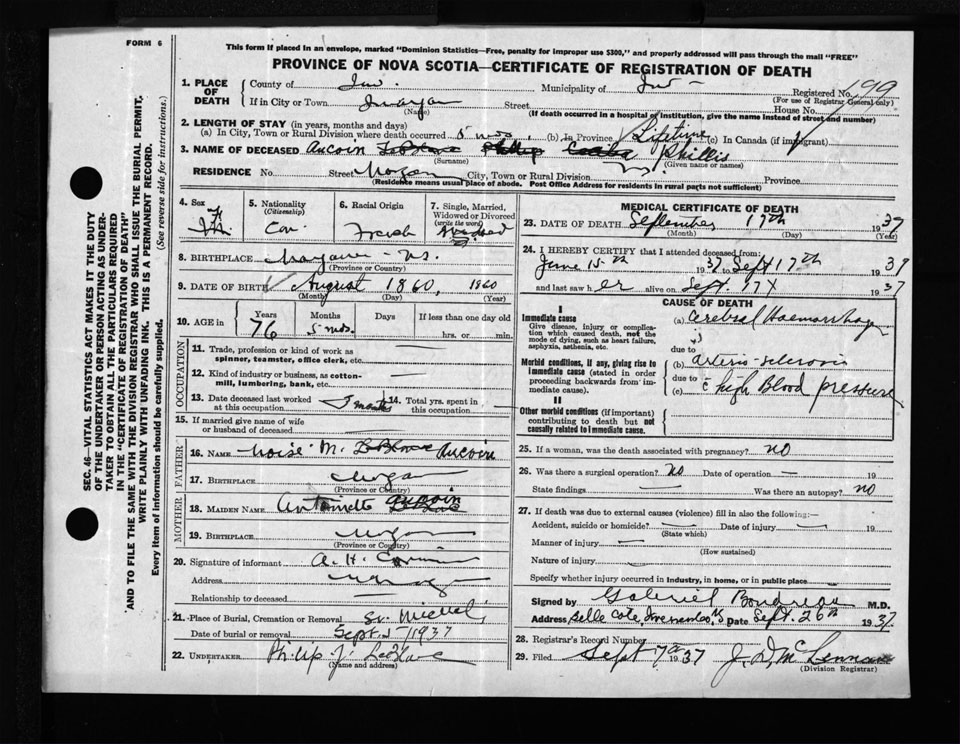 FORM 6
This form if placed in an envelope, marked "Dominion Statistics—Free, penalty for improper use $300," and properly addressed will pass through the mail "FREE"
PROVINCE OF NOVA SCOTIA—CERTIFICATE OF REGISTRATION OF DEATH
SEC. 46—VITAL STATISTICS ACT MAKES IT THE DUTY
OF THE UNDERTAKER OR PERSON ACTING AS UNDER-
TAKER TO OBTAIN ALL THE PARTICULARS REQUIRED
IN THE "CERTIFICATE OF REGISTRATION OF DEATH"
AND TO FILE THE SAME WITH THE DIVISION REGISTRAR WHO SHALL ISSUE THE BURIAL PERMIT.
WRITE PLAINLY WITH UNFADING INK. THIS IS A PERMANENT RECORD.
Every item of information should be carefully supplied. (See reverse side for instructions.)
1. PLACE OF DEATH
County of Inv. Municipality of Inv Registered No. 199
(For use of Registrar General only)
If in City or Town Street House No.
(Name) (If death occurred in a hospital or institution, give the name instead of street and number)
2. LENGTH OF STAY (in years, months and days)
(a) In City, Town or Rural Division where death occurred 5 mos. (b) In Province Lifetime (c) In Canada (if immigrant)
3. NAME OF DECEASED Aucoin LeBlanc Phillip Phillis
(Surname) (Given name or names)
RESIDENCE No. Street City, Town or Rural Division Province
(Residence means usual place of abode. Post Office Address for residents in rural parts not sufficient)
4. Sex F
5. Nationality (Citizenship) Can.
6. Racial Origin French
7. Single, Married, Widowed or Divorced (write the word)
8. BIRTHPLACE
(Province or Country)
9. DATE OF BIRTH August 1860, 1860
(Month) (Day) (Year)
10. AGE in Years 76 Months 5 mos. Days If less than one day hrs. or min.
OCCUPATION
11. Trade, profession or kind of work as spinner, teamster, office clerk, etc. —
12. Kind of industry or business, as cotton-mill, lumbering, bank, etc. —
13. Date deceased last worked at this occupation
14. Total yrs. spent in this occupation —
15. If married give name of wife or husband of deceased
FATHER
16. NAME M. LeBlanc Aucoin
17. BIRTHPLACE
(Province or Country)
MOTHER
18. MAIDEN NAME Antoinette Aucoin LeBlanc
19. BIRTHPLACE
(Province or Country)
20. Signature of informant A. H.
Address
Relationship to deceased —
21. Place of Burial, Cremation or Removal St. Michael,
Date of burial or removal Sept. 1937
22. UNDERTAKER Philip J. LeBlanc
(Name and address)
MEDICAL CERTIFICATE OF DEATH
23. DATE OF DEATH September 17th 1937
(Month) (Day) (Year)
24. I HEREBY CERTIFY that I attended deceased from:
June 15th 1937 to Sept 17th 1937
and last saw her alive on Sept. 17th 1937
CAUSE OF DEATH
Immediate cause
Give disease, injury or complication which caused death, not the mode of dying, such as heart failure, asphyxia, asthenia, etc.
(a) Cerebral Haemorrhage
due to
Morbid conditions, if any, giving rise to immediate cause (stated in order proceeding backwards from immediate cause).
(b) Arterio-sclerosis
due to
(c) c high Blood pressure
II
Other morbid conditions (if important) contributing to death but not causally related to immediate cause.
25. If a woman, was the death associated with pregnancy? no
26. Was there a surgical operation? no Date of operation — 19
State findings — Was there an autopsy? no
27. If death was due to external causes (violence) fill in also the following:—
Accident, suicide or homicide? — Date of injury — 19
(State which)
Manner of injury —
(How sustained)
Nature of injury —
Specify whether injury occurred in industry, in home, or in public place
Signed by Gabriel Boudreau M.D.
Address Belle Cote, Inverness Co. NS Date Sept. 26th 1937
28. Registrar's Record Number
29. Filed Sept 1937 J. D. McLennan
(Division Registrar)